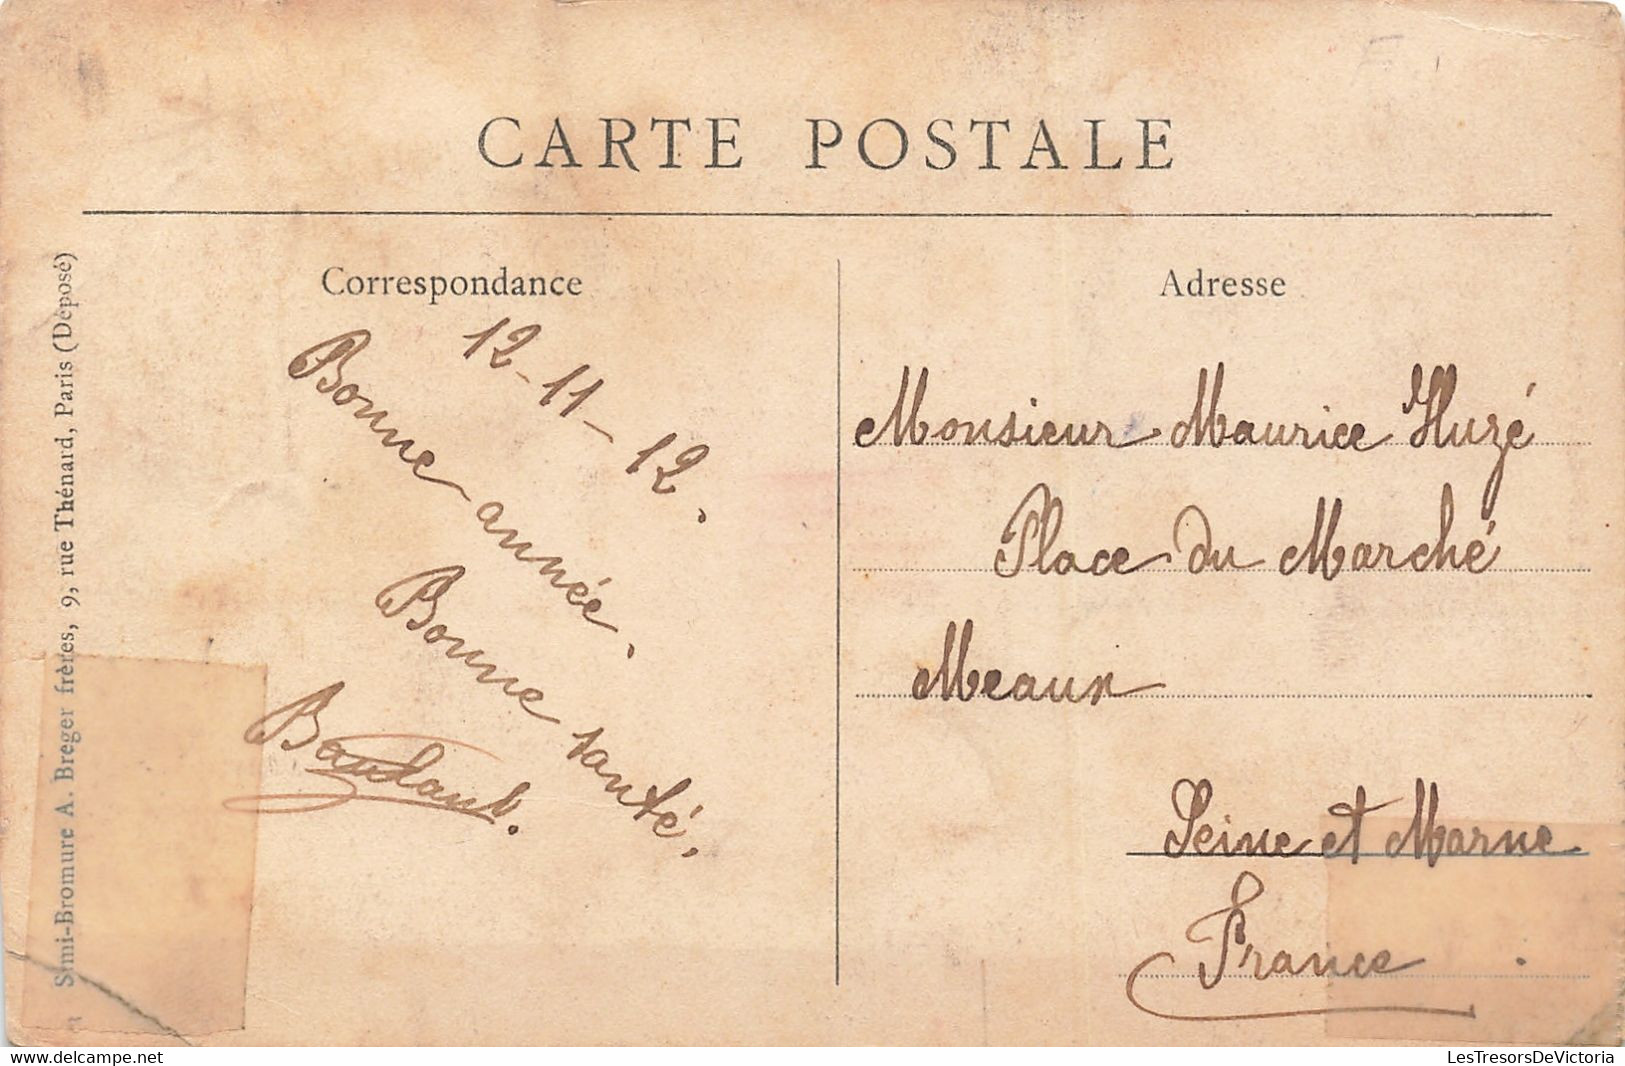 CARTE POSTALE
Correspondance
12-11-12.
Bonne année.
Bonne santé.
Adresse
Monsieur Maurice Huzé
Place du Marché
Meaux
Seine et Marne
France
Simi-Bromure A. Breger frères, 9, rue Thénard, Paris (Déposé)
LesTresorsDeVictoria